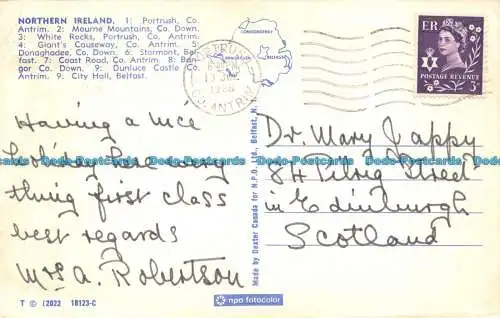 NORTHERN IRELAND. 1: Portrush, Co.
Antrim. 2: Mourne Mountains, Co. Down.
3: White Rocks, Portrush, Co. Antrim.
4: Giant's Causeway, Co. Antrim. 5:
Donaghadee, Co. Down. 6: Stormont, Bel-
fast. 7: Coast Road, Co. Antrim. 8: Ban-
gor Co. Down. 9: Dunluce Castle Co.
Antrim. 9: City Hall, Belfast.
LONDONDERRY
BELFAST
PORTRUSH
CO. ANTRIM
E R
POSTAGE REVENUE
3D
Having a nice
holiday here every
thing first class
best regards
Mrs A. Robertson
Made by Dexter Canada for N.P.O. Ltd., Belfast, N.I.
Dr. Mary Jappy
84 Pilrig Street
in Edinburgh
Scotland
T © (2022 18123-C
npo fotocolor
Dodo-Postcards Dodo-Postcards Dodo-Postcards Dodo-Postcards